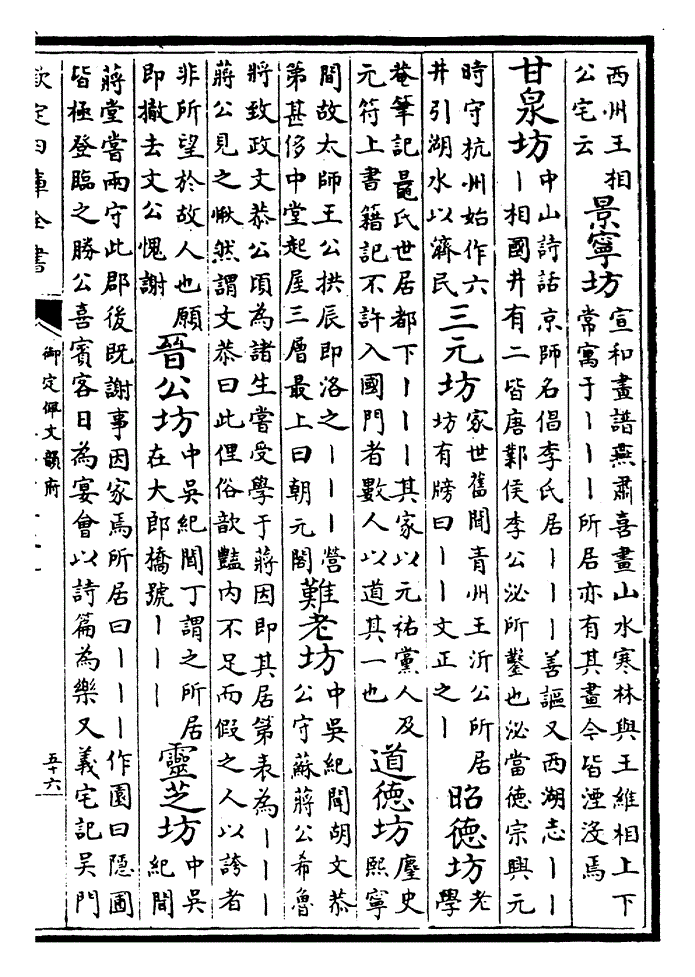 西州王相
公宅云
景寧坊
宣和畫譜燕肅喜畫山水寒林與王維相上下
常寓于丨丨丨所居亦有其畫今皆湮沒焉
甘泉坊
中山詩話京師名倡李氏居丨丨丨善謳又西湖志丨丨
丨相國井有二皆唐鄴侯李公泌所鑿也泌當德宗興元
時守杭州始作六
井引湖水以濟民
三元坊
家世舊聞青州王沂公所居
坊有牓曰丨丨文正之丨
昭德坊
老
學
菴筆記鼂氏世居都下丨丨丨其家以元祐黨人及
元符上書籍記不許入國門者數人以道其一也
道德坊
麈史
熙寧
間故太師王公拱辰即洛之丨丨丨營
第甚侈中堂起屋三層最上曰朝元閣
難老坊
中吳紀聞胡文恭
公守蘇蔣公希魯
將致政文恭公頃為諸生嘗受學于蔣因即其居第表為丨丨丨
蔣公見之愀然謂文恭曰此俚俗歆豔内不足而假之人以誇者
非所望於故人也願
即撤去文公愧謝
晉公坊
中吳紀聞丁謂之所居
在大郎橋號丨丨丨
靈芝坊
中吳
紀聞
蔣堂嘗兩守此郡後既謝事因家焉所居曰丨丨丨作園曰隱圃
皆極登臨之勝公喜賓客日為宴會以詩篇為樂又義宅記吳門
欽定四庫全書
御定佩文韻府
五十六